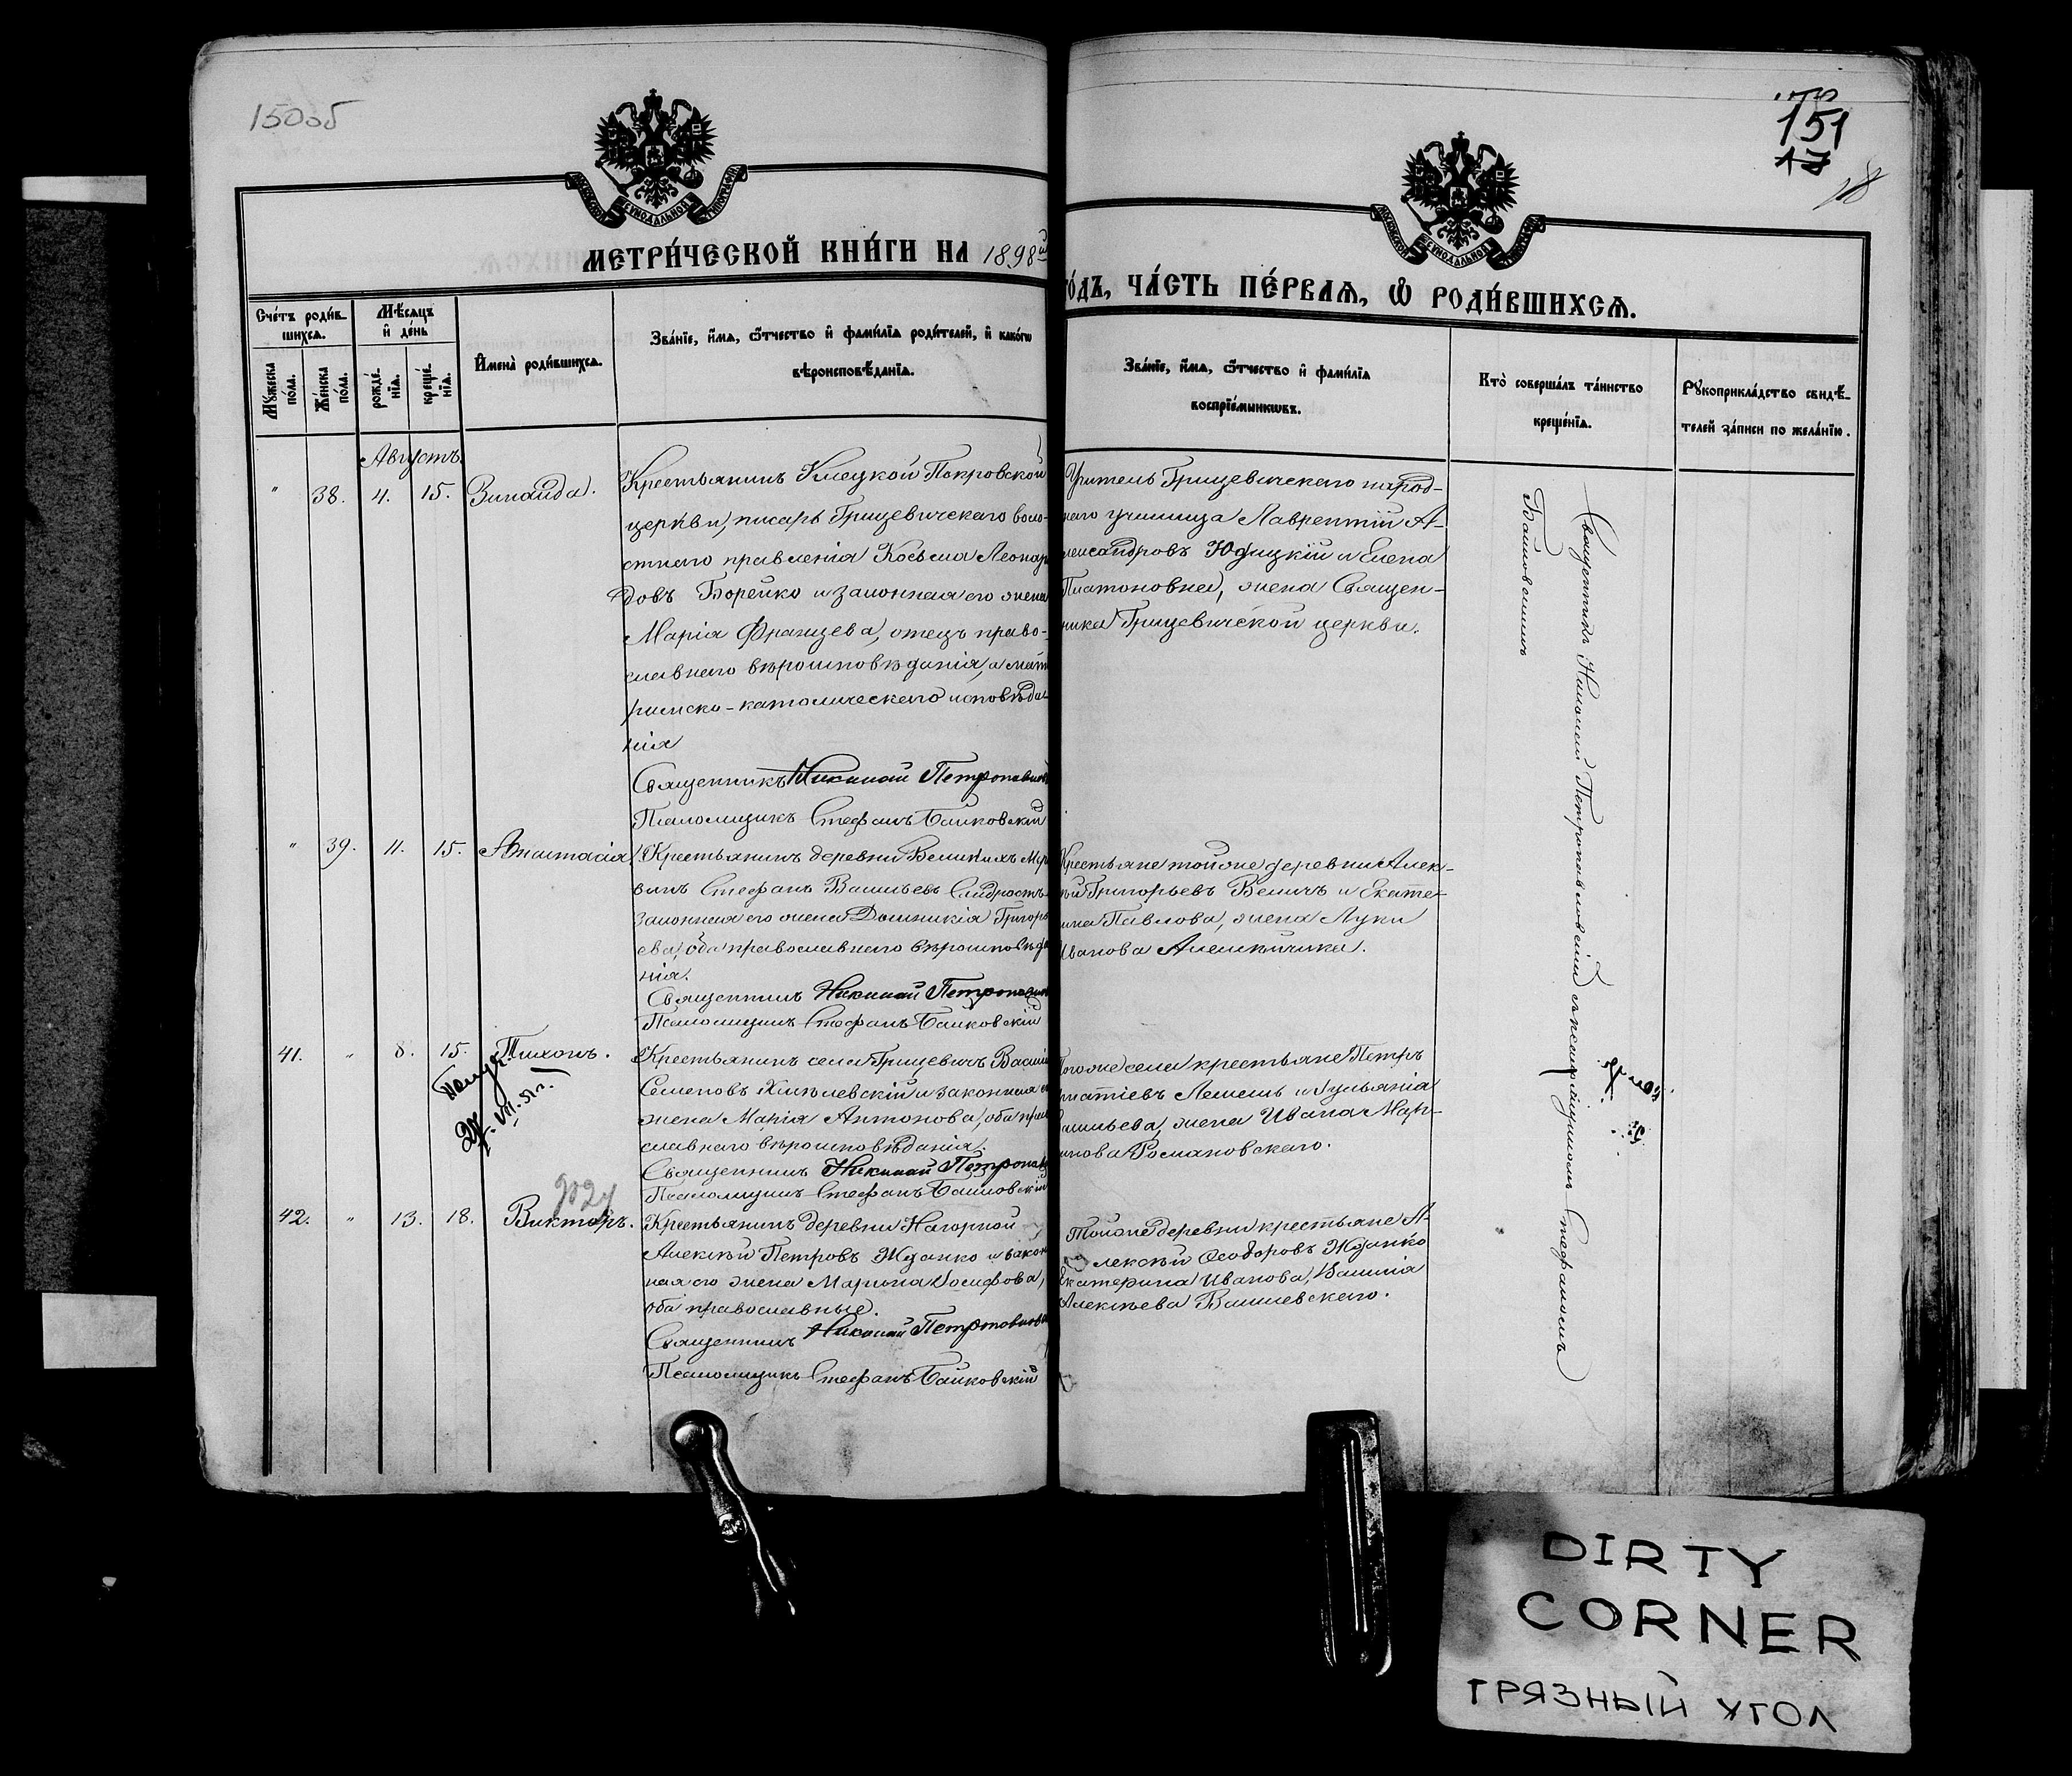 150об
151
17
18
МОСКОВСКОЙ СѴНОДАЛЬНОЙ ТИПОГРАФІИ
МЕТРИ́ЧЕСКОЙ КНИ́ГИ НА 1898й
МОСКОВСКОЙ СѴНОДАЛЬНОЙ ТИПОГРАФІИ
ГО́ДЪ, ЧА́СТЬ ПЕ́РВАѦ, Ѿ РОДИ́ВШИХСѦ.
Сче́тъ роди́в-
шихсѧ.
Мꙋ́жеска
по́ла.
Же́нска
по́ла.
Мѣ́сѧцъ
и҆ де́нь
рожде́-
нїѧ.
креще́-
нїѧ.
И҆мена̀ роди́вшихсѧ.
Зва́нїе, и҆́мѧ, ѻ҆́тчество и҆ фами́лїѧ роди́телей, и҆ како́гѡ
вѣроисповѣ́данїѧ.
Зва́нїе, и҆́мѧ, ѻ҆́тчество и҆ фами́лїѧ
воспрїе́мникѡвъ.
Кто̀ соверша́лъ та́инство
креще́нїѧ.
Рꙋкоприкла́дство свидѣ́-
телей за́писи по жела́нїю.
Августъ.
" 38. 4. 15. Зинаида.
Крестьянинъ Клецкой Покровской
церкви, писарь Грицевичскаго воло-
стнаго правленія Косьма Леонар
довъ Борейко и законная его жена
Марія Францева, отецъ право-
славнаго вѣроисповѣданія, а мать
римско-католическаго исповѣда-
нія
Священникъ Николай Петропавлов
Псаломщикъ Стефанъ Банковскій
Учитель Грицевичскаго народ-
наго училища Лаврентій А-
лександровъ Юдицкій и Елена
Платоновна, жена Священ-
ника Грицевичской церкви.
Священникъ Николай Петропавловскій съ псаломщикомъ Стефаномъ
Банковскимъ
" 39. 11. 15. Анастасія
Крестьянинъ деревни Великихъ
Стефанъ Васильевъ
законная его жена Домникія Григорь
ева, оба православнаго вѣроисповѣда
нія.
Священникъ Николай Петропавлов
Псаломщикъ Стефанъ Банковскій
Крестьяне той же деревни Алек-
ѣй Григорьевъ Величъ и Екате-
рина Павлова, жена Луки
Иванова
41. " 8. 15. Тихонъ.
VII. 51 г.
Крестьянинъ села Грицевичъ Васил
Семеновъ Хмѣлевскій и законная е
жена Марія Антонова, оба прав
славнаго вѣроисповѣданія.
Священникъ Николай Петропав
Псаломщикъ Стефанъ Банковскій
Того же села крестьяне Петръ
Игнатіевъ Лемешъ и Іульянія
Васильева, жена Ивана Мар-
тинова Романовскаго.
42. " 13. 18. Викторъ.
Крестьянинъ деревни Нагорной
Алексѣй Петровъ Жданко и закон
ная его жена Марина Іосифова,
оба православные.
Священникъ Николай Петропавлов
Псаломщикъ Стефанъ Банковскій
Той же деревни крестьяне А-
лексѣй Ѳеодоровъ Жданко
Екатерина Иванова,
Алексѣева
DIRTY
CORNER
ГРЯЗНЫЙ УГОЛ